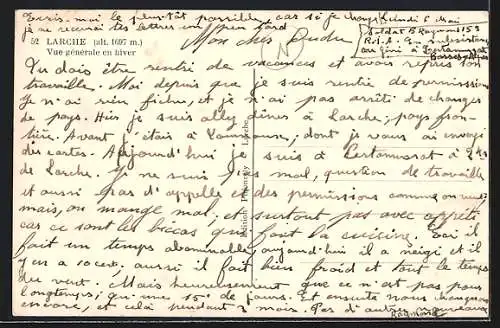 Écris-moi le plus tôt possible, car si je change
je recevrai tes lettres un peu tard
Lundi 6 Mai
Soldat B Raymond 159
R.I.A. En subsistance
au Génie à Certamussat
Basses-Alpes
52 LARCHE (alt. 1697 m.)
Vue générale en hiver
Mon cher André
Tu dois être rentré de vacances et avoir repris ton
travaille. Moi depuis que je suis rentré de permission
je n'ai rien fichu, et je n'ai pas arrêté de changer
de pays. Hier je suis allé dîner à Larche, pays fron-
tière. Avant j'étais à, dont je vous ai envoyé
des cartes. Aujourd'hui je suis à Certamussat à 2 Km
de Larche. Je ne suis pas mal, question de travaille
et aussi pas d'appelle et des permissions comme on veut,
mais, on mange mal, et surtout pas avec appétit
car ce sont les biccas qui font la cuisine. Ici il
fait un temps abominable, aujourd'hui il a neigé et il
y en a 10 cm, aussi il fait bien froid et tout le temps
du vent. Mais heureusement que ce n'est pas pour
longtemps, qu'une 15e de jours. Et ensuite nous changeons
encore, et cela pendant 2 mois. Pas d'autre nouveau
Raymond
Larche